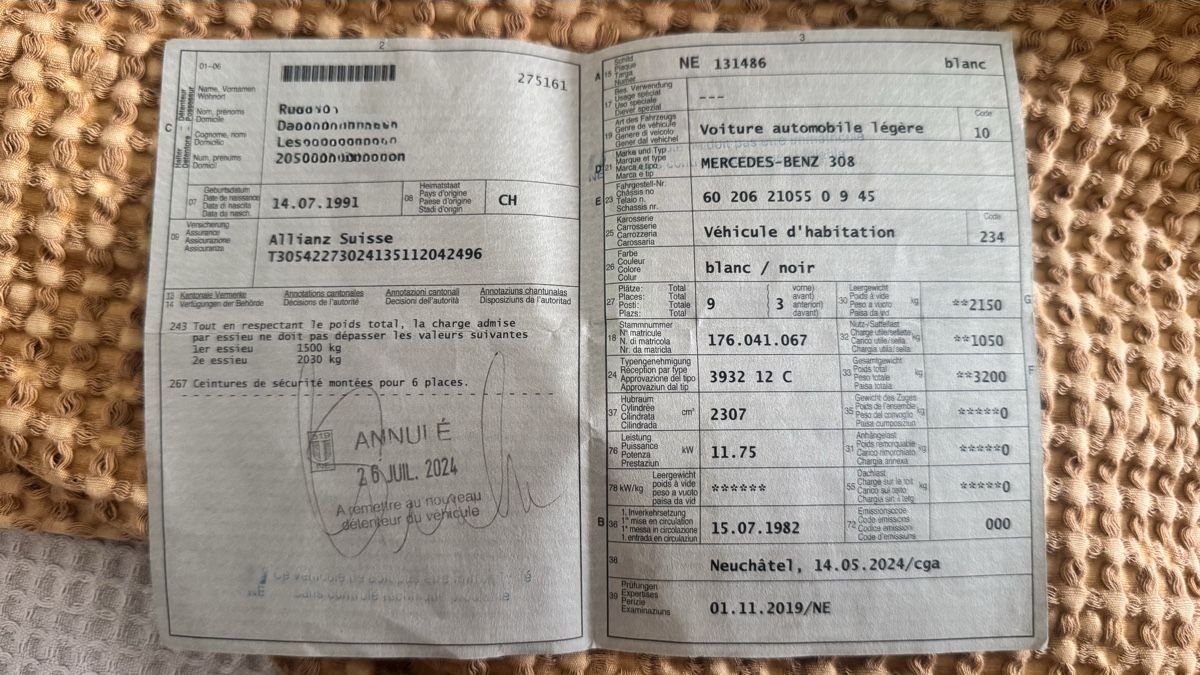 2
01-06
275161
C
Name, Vornamen
Wohnort
Nom, prénoms
Domicile
Cognome, nomi
Domicilio
Num, prenums
Domicil
07
Geburtsdatum
Date de naissance
Data di nascita
Data da nasch.
14.07.1991
08
Heimatstaat
Pays d'origine
Paese d'origine
Stadi d'origin
CH
09
Versicherung
Assurance
Assicurazione
Assicuranza
Allianz Suisse
T30542273024135112042496
13 Kantonale Vermerke
14 Verfügungen der Behörde
Annotations cantonales
Décisions de l'autorité
Annotazioni cantonali
Decisioni dell'autorità
Annotaziuns chantunalas
Disposiziuns da l'autoritad
243 Tout en respectant le poids total, la charge admise
par essieu ne doit pas dépasser les valeurs suivantes
1er essieu 1500 kg
2e essieu 2030 kg
267 Ceintures de sécurité montées pour 6 places.
ANNULÉ
26 JUIL. 2024
A remettre au nouveau
détenteur du véhicule
3
A
15
Schild
Plaque
Targa
Numer
NE 131486 blanc
17
Bes. Verwendung
Usage spécial
Uso speciale
Diever spezial
---
19
Art des Fahrzeugs
Genre de véhicule
Genere di veicolo
Gener dal vehichel
Voiture automobile légère
Code
10
D
21
Marke und Typ
Marque et type
Marca e tipo
Marca e tip
MERCEDES-BENZ 308
E
23
Fahrgestell-Nr.
Châssis no
Telaio n.
Schassis nr.
60 206 21055 0 9 45
25
Karosserie
Carrosserie
Carrozzeria
Carossaria
Véhicule d'habitation
Code
234
26
Farbe
Couleur
Colore
Colur
blanc / noir
27
Plätze: Total
Places: Total
Posti: Totale
Plazs: Total
9
3
vorne)
avant)
anteriori)
davant)
30
Leergewicht
Poids à vide
Peso a vuoto
Paisa da vid
kg
**2150
G
18
Stammnummer
N° matricule
N. di matricola
Nr. da matricla
176.041.067
32
Nutz-/Sattellast
Charge utile/sellette
Carico utile/sella
Chargia utila/sella
kg
**1050
24
Typengenehmigung
Réception par type
Approvazione del tipo
Approvaziun dal tip
3932 12 C
33
Gesamtgewicht
Poids total
Peso totale
Paisa totala
kg
**3200
F
37
Hubraum
Cylindrée
Cilindrata
Cilindrada
cm³
2307
35
Gewicht des Zuges
Poids de l'ensemble
Peso del convoglio
Paisa cumposiziun
kg
*****0
76
Leistung
Puissance
Potenza
Prestaziun
kW
11.75
31
Anhängelast
Poids remorquable
Carico rimorchiato
Chargia annexa
kg
*****0
78 kW/kg
Leergewicht
poids à vide
peso a vuoto
paisa da vid
******
55
Dachlast
Charge sur le toit
Carico sul tetto
Chargia sin il tetg
kg
*****0
B
36
1. Inverkehrsetzung
1re mise en circulation
1a messa in circolazione
1. entrada en circulaziun
15.07.1982
72
Emissionscode
Code émissions
Codice emissioni
Code d'emissiuns
000
38
Neuchâtel, 14.05.2024/cga
39
Prüfungen
Expertises
Perizie
Examinaziuns
01.11.2019/NE